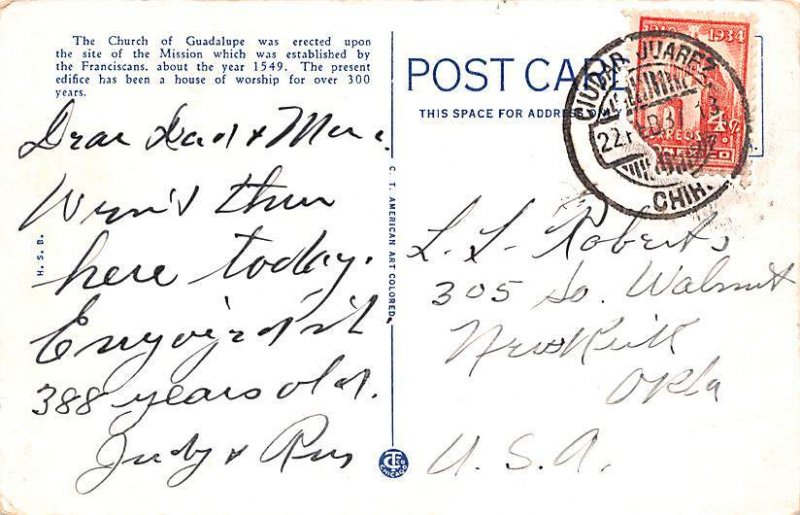 The Church of Guadalupe was erected upon
the site of the Mission which was established by
the Franciscans. about the year 1549. The present
edifice has been a house of worship for over 300
years.
Dear Dad & Mom.
Went thru
here today.
Enjoyed it.
388 years old.
Judy & Russ
H. S. B.
C. T. AMERICAN ART COLORED
CT CO
CHICAGO
POST CARD
THIS SPACE FOR ADDRESS ON
1934
CIUDAD JUAREZ
22 FEB 37 13
CHIH.
4 c
L. L. Roberts
305 So. Walnut
Newkirk
Okla
U. S. A.